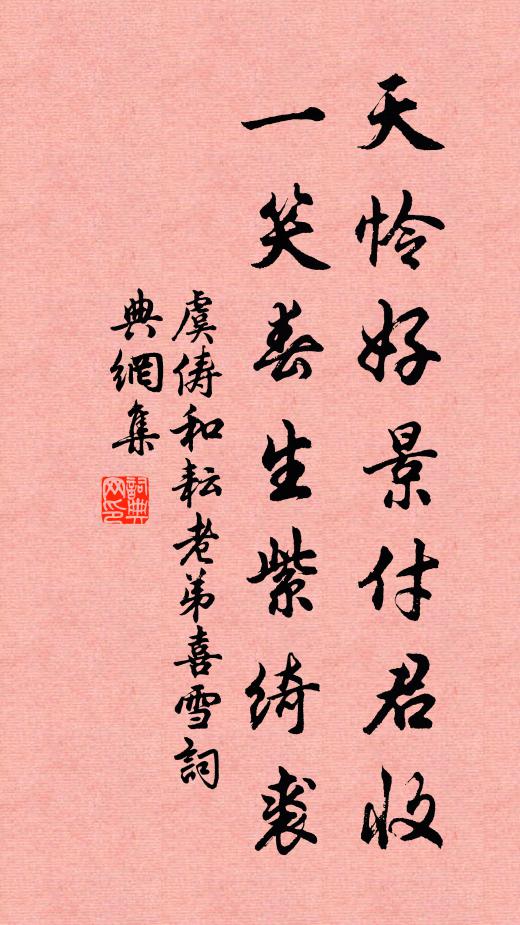 天怜好景付君收
一笑春生紫绮裘
虞俦和耘老弟喜雪詞
典網集
詞典
网印